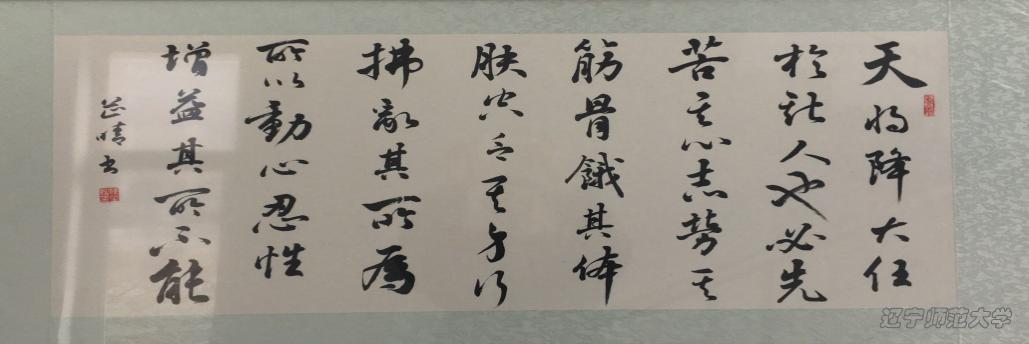 天将降大任
於斯人也必先
苦其心志勞其
筋骨餓其体
肤空乏其身行
拂亂其所為
所以動心忍性
增益其所不能
晴书
辽宁师范大学